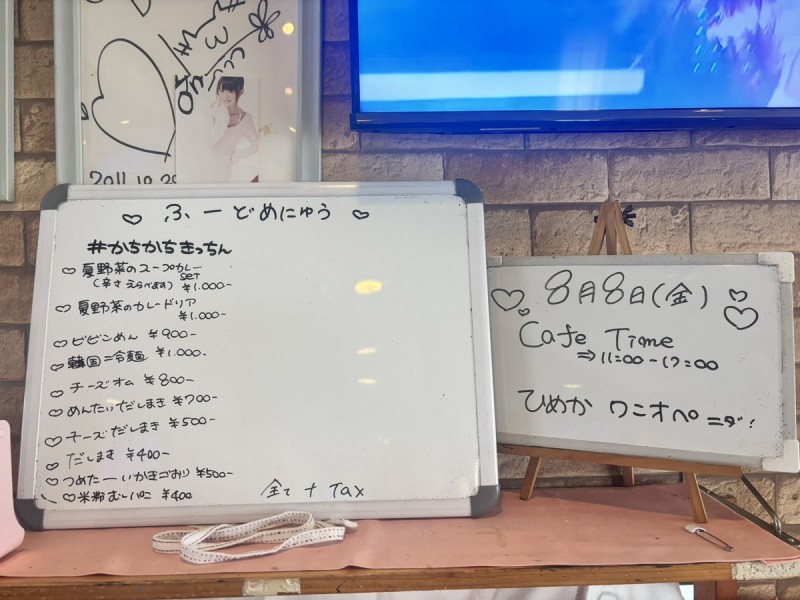 2011.10.29
♡ ふーどめにゅう ♡
#かちかちきっちん
♡ 夏野菜のスープカレー SET
(辛さえらべます) ¥1.000-
♡ 夏野菜のカレードリア
¥1.000-
♡ ビビンめん ¥900-
♡ 韓国=冷麺 ¥1.000.
♡ チーズオム ¥800-
♡ めんたいだしまき ¥700-
♡ チーズだしまき ¥500-
♡ だしまき ¥400-
♡ つめたーいかきごおり ¥500-
♡ 米粉むしパン ¥400
全て + Tax
8月8日(金)
Cafe Time
⇒11:00-17:00
ひめか ワニオペ ニダ!